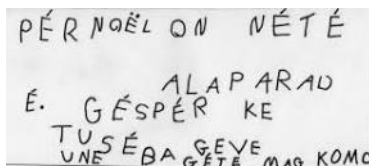 PÉR NOËL ON NÉTÉ
ALAPARAD
É. GÉSPÉR KE
TU SÉBA GEVE
UNE GÉTÉ MAG KOMO